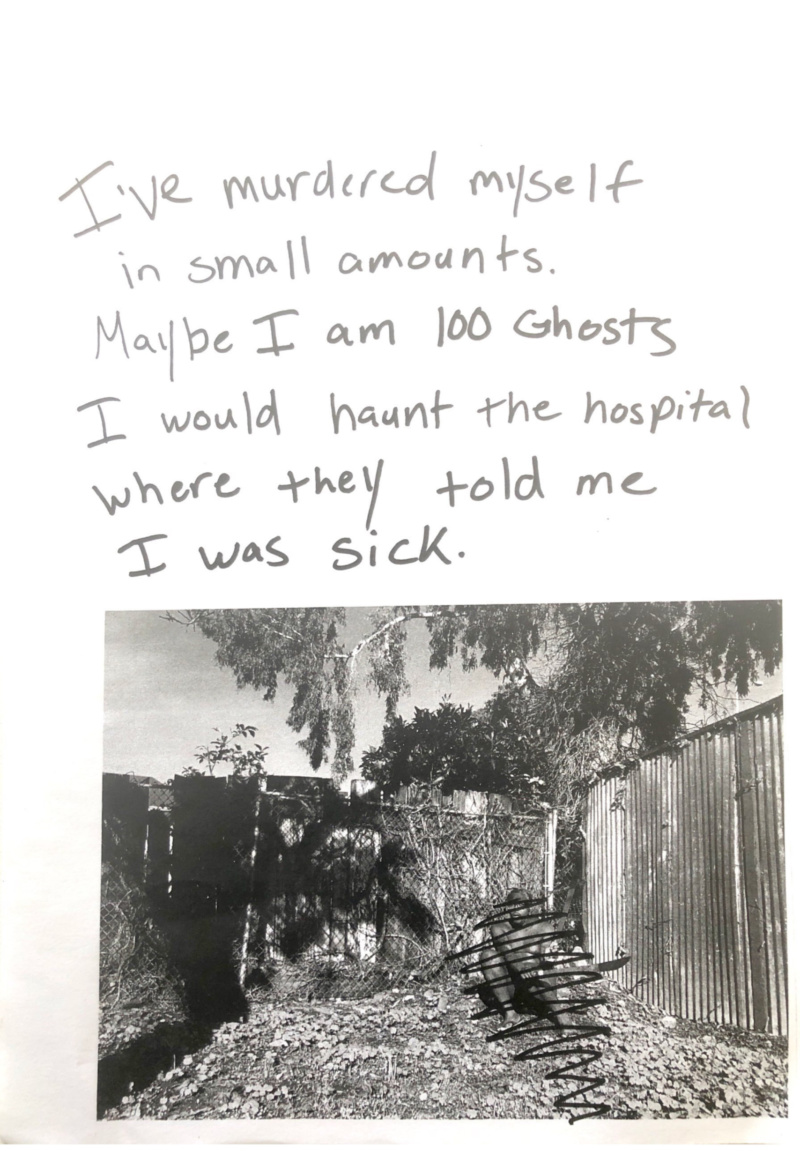 I've murdered myself
in small amounts.
Maybe I am 100 Ghosts
I would haunt the hospital
where they told me
I was sick.